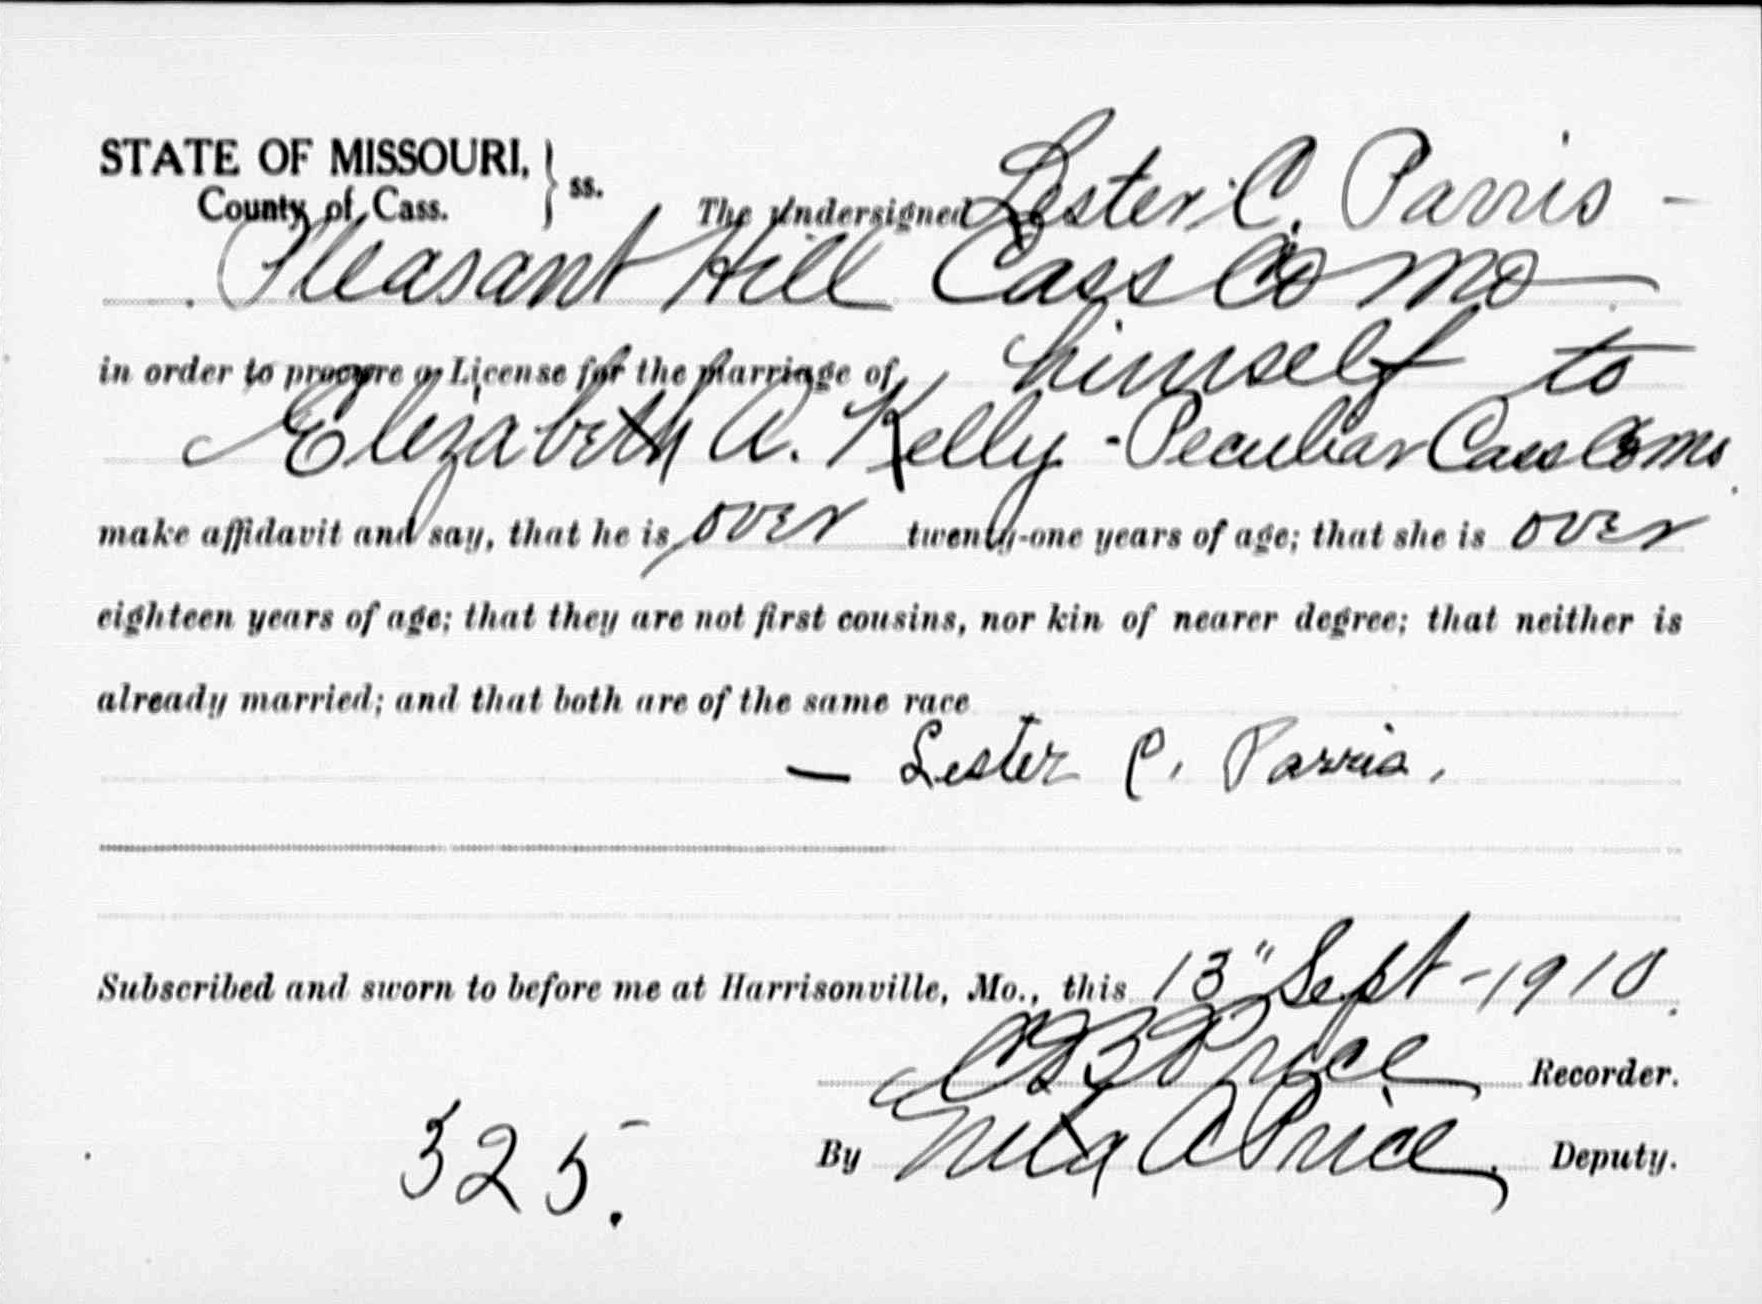 STATE OF MISSOURI, } ss.
County of Cass.
The Undersigned Lester C. Parris -
Pleasant Hill Cass Co Mo
in order to procure a License for the marriage of himself to
Elizabeth A. Kelly - Peculiar Cass Co Mo
make affidavit and say, that he is over twenty-one years of age; that she is over
eighteen years of age; that they are not first cousins, nor kin of nearer degree; that neither is
already married; and that both are of the same race
— Lester C. Parris.
Subscribed and sworn to before me at Harrisonville, Mo., this 13" Sept - 1910.
Price Recorder.
325.
By A Price Deputy.